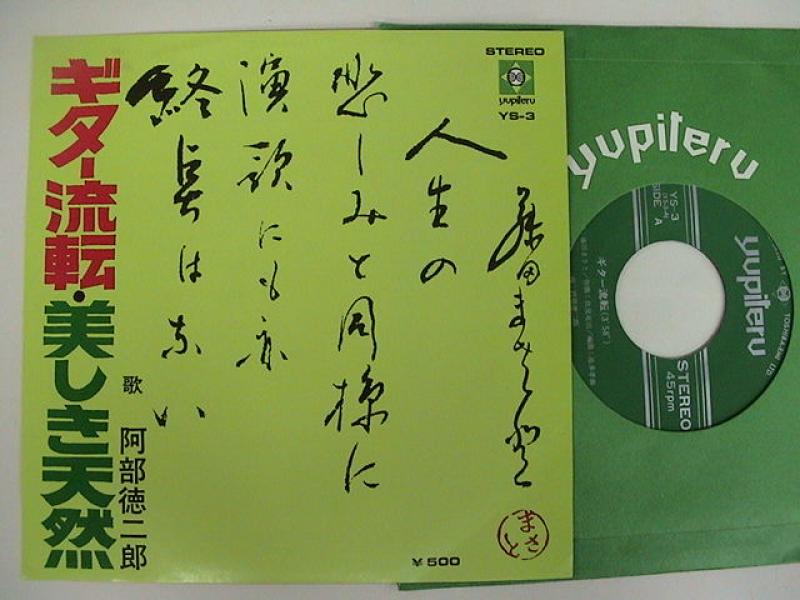 STEREO
yupiteru
YS-3
藤田まさと
人生の
悲しみと同様に
演歌にも亦
終点はない
まさと
ギター流転・美しき天然
歌 阿部徳二郎
¥500
yupiteru
YS-3
SIDE A
yupiteru
STEREO
45rpm
ギター流転(3'58")